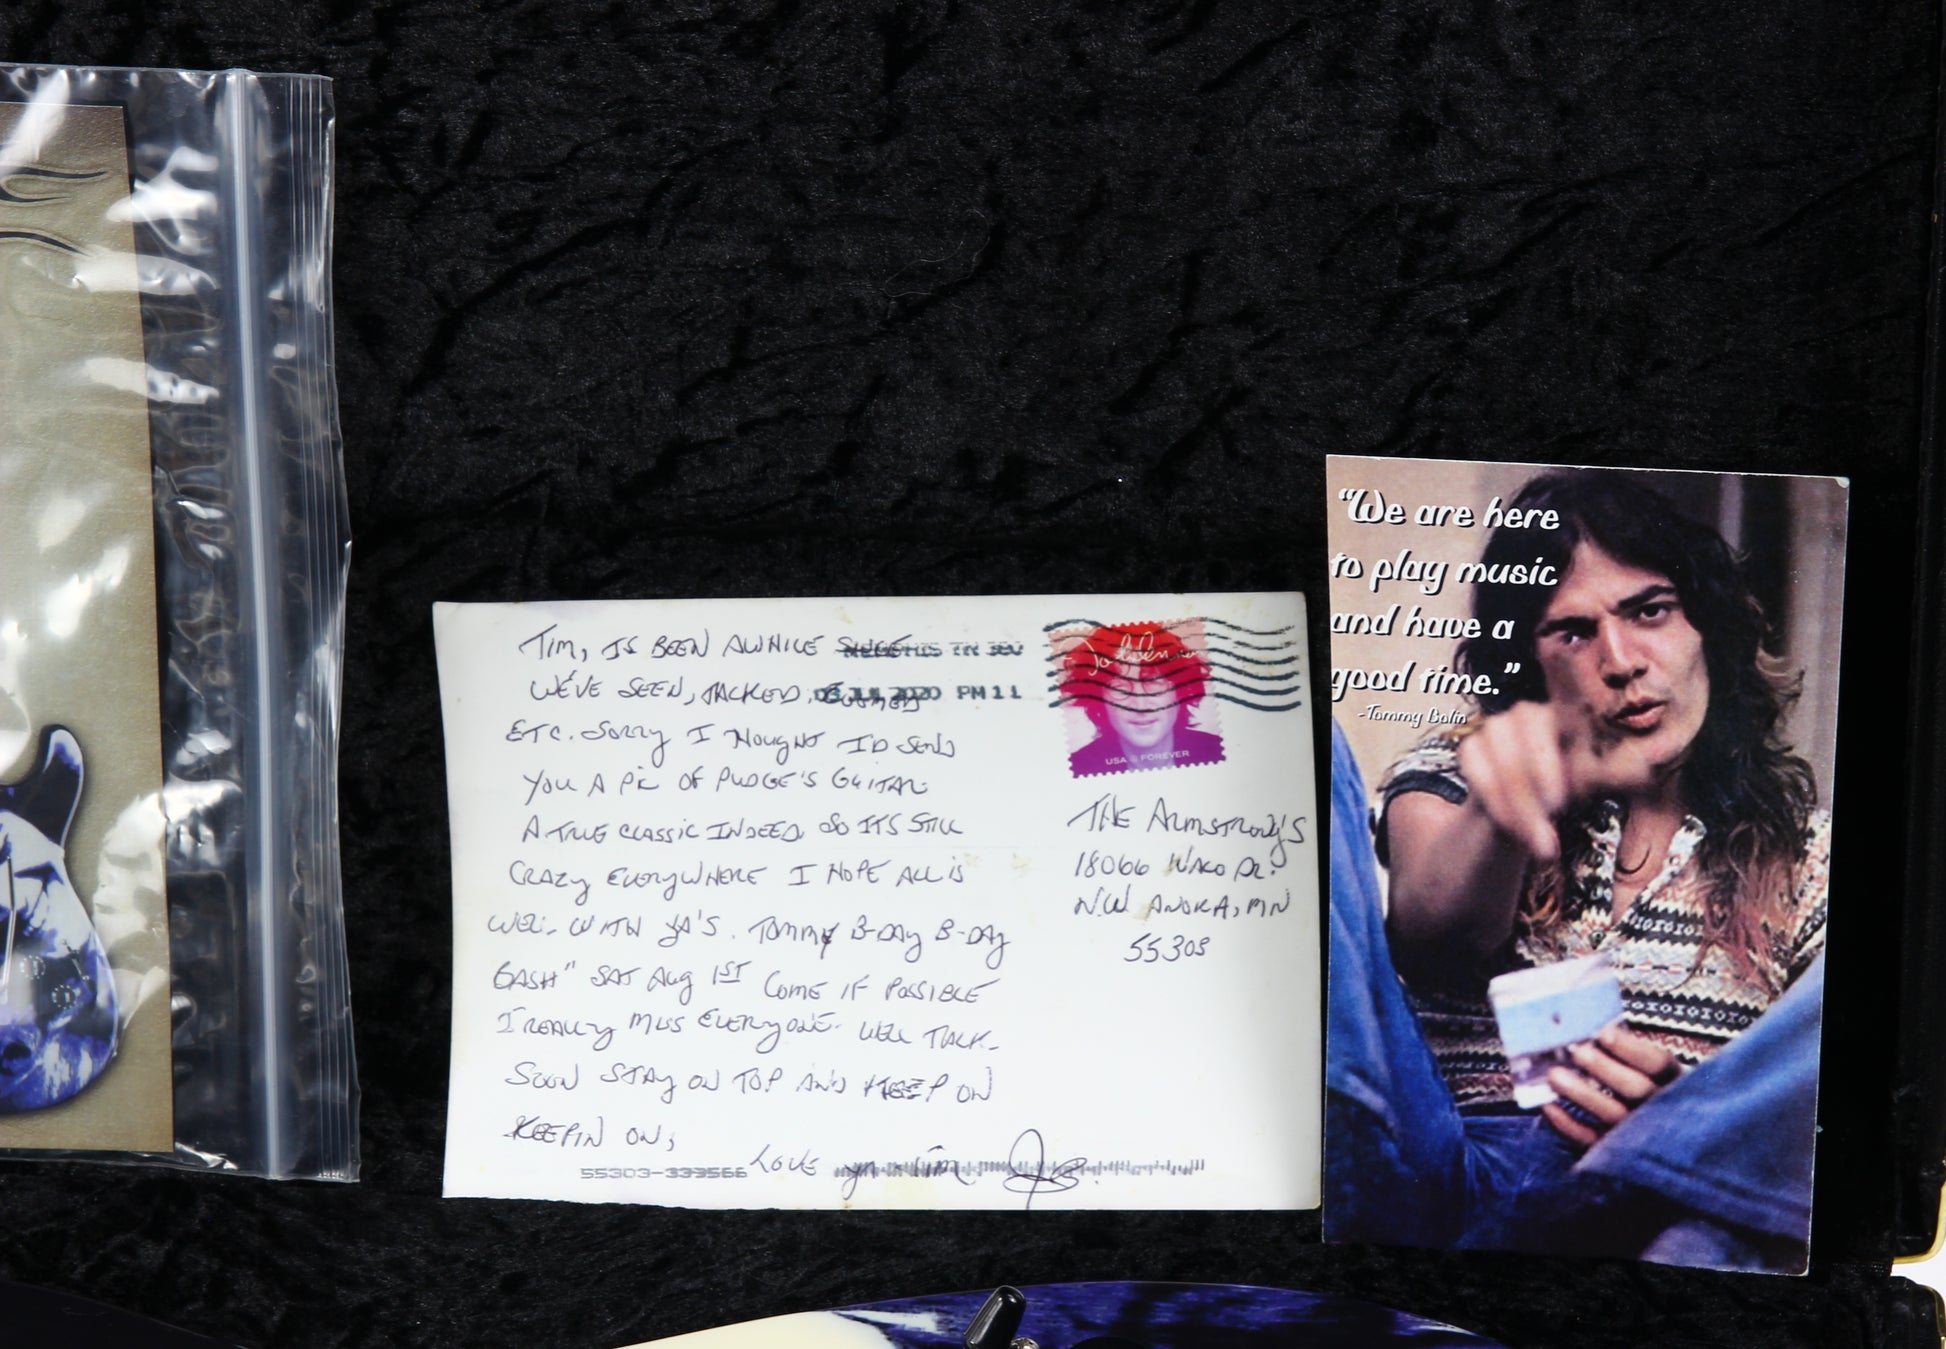 TIM, IS BEEN AWHILE SINCE
WE'VE SEEN, TALKED,
ETC. SORRY I THOUGHT I'D SEND
YOU A PIC OF PUDGE'S GUITAR
A TRUE CLASSIC INDEED SO ITS STILL
CRAZY EVERYWHERE I HOPE ALL IS
WELL WITH YA'S. TOMMY B-DAY B-DAY
BASH" SAT AUG 1ST COME IF POSSIBLE
I REALLY MISS EVERYONE. WE'LL TALK
SOON STAY ON TOP AND KEEP ON
KEEPIN ON;
LOVE
55303-339566
TN 380
2020 PM 1 L
USA FOREVER
THE ARMSTRONG'S
18066 WACO DR.
N.W ANOKA, MN
55303
"We are here
to play music
and have a
good time."
-Tommy Bolin